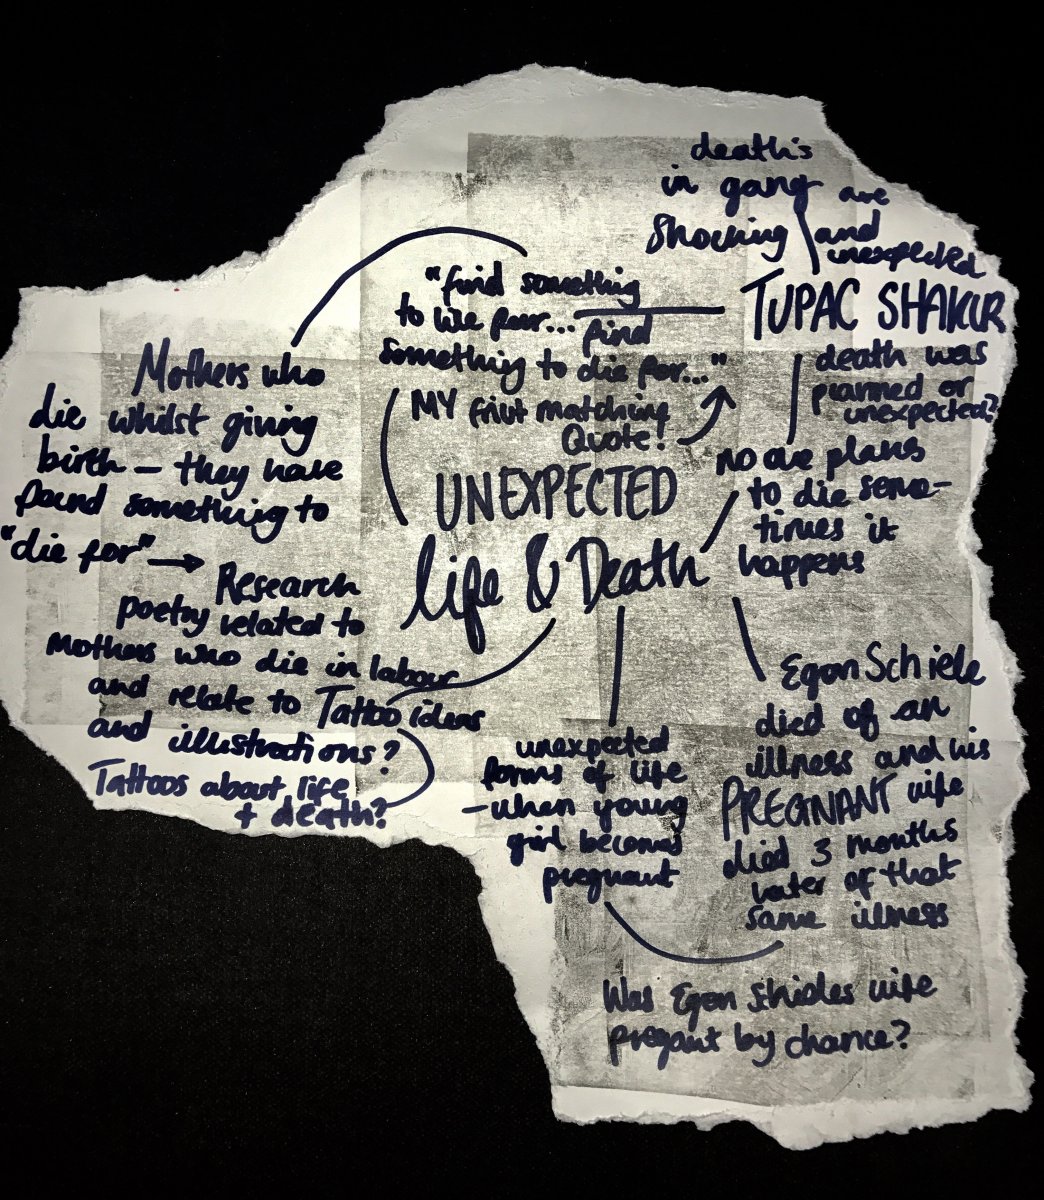 death's
in gang are
shocking and
unexpected
TUPAC SHAKUR
death was
planned or
unexpected?
no one plans
to die some-
times it
happens
"find something
to live for... find
something to die for..."
MY first matching
Quote!
UNEXPECTED
life & Death
Mothers who
die whilst giving
birth – they have
found something to
"die for" →
Research
poetry related to
mothers who die in labour
and relate to Tattoo ideas
and illustrations?
Tattoos about life
+ death?
unexpected
forms of life
- when young
girl becomes
pregnant
Egon Schiele
died of an
illness and his
PREGNANT wife
died 3 months
later of that
same illness
Was Egon Schieles wife
pregant by chance?